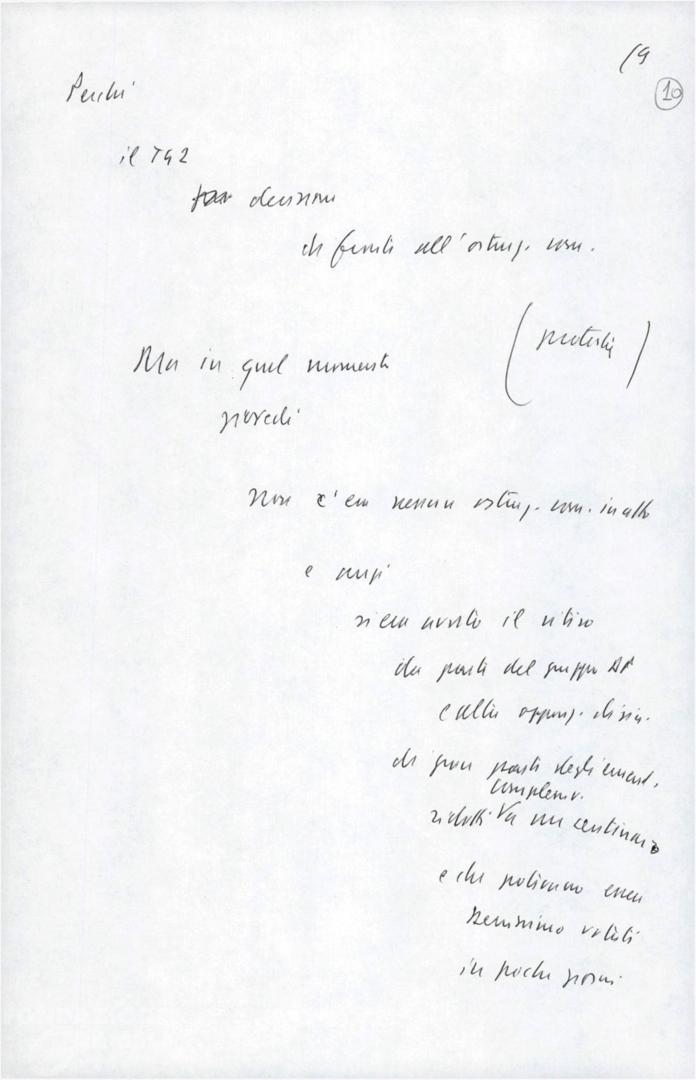 19
10
Perché
il TG2
decisioni
di fronte all'ostruz. com.
(protesta)
Ma in quel momento
giovedì
Non c'era nessun ostruz. com. in atto
e anzi
si era avuto il ritiro
da parte del gruppo
e altre oppos. di sin.
di gran parte degli emend.
complessiv.
ridotti a un centinaio
e che potevano essere
benissimo votati
in pochi giorni